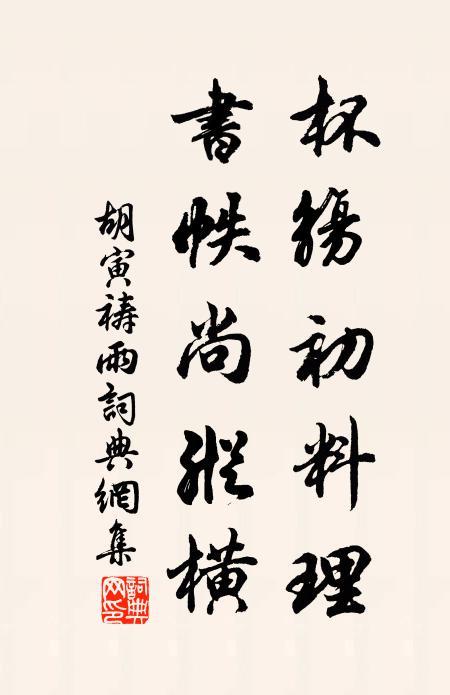 杯觴初料理
書帙尚縱橫
胡寅禱雨詞典網集
詞典網印